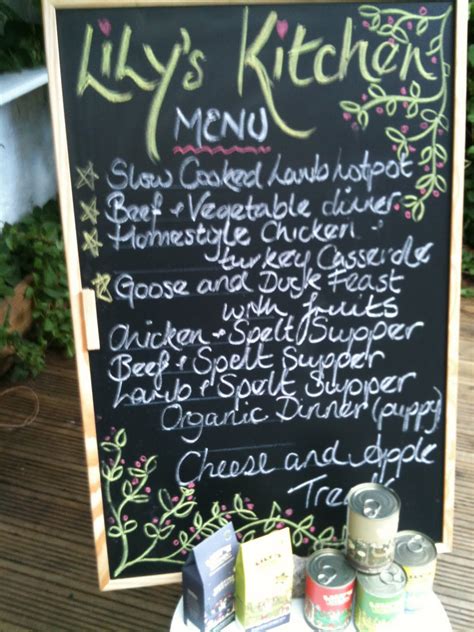 Lily's Kitchen
MENU
Slow Cooked Lamb hotpot
Beef + Vegetable dinner
Homestyle Chicken +
turkey Casserole
Goose and Duck Feast
with fruits
Chicken + Spelt Supper
Beef + Spelt Supper
Lamb + Spelt Supper
Organic Dinner (puppy)
Cheese and Apple